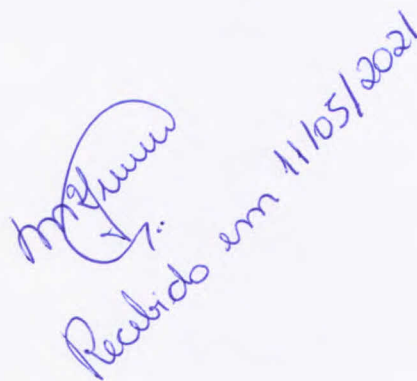 Recebido em 11/05/2021